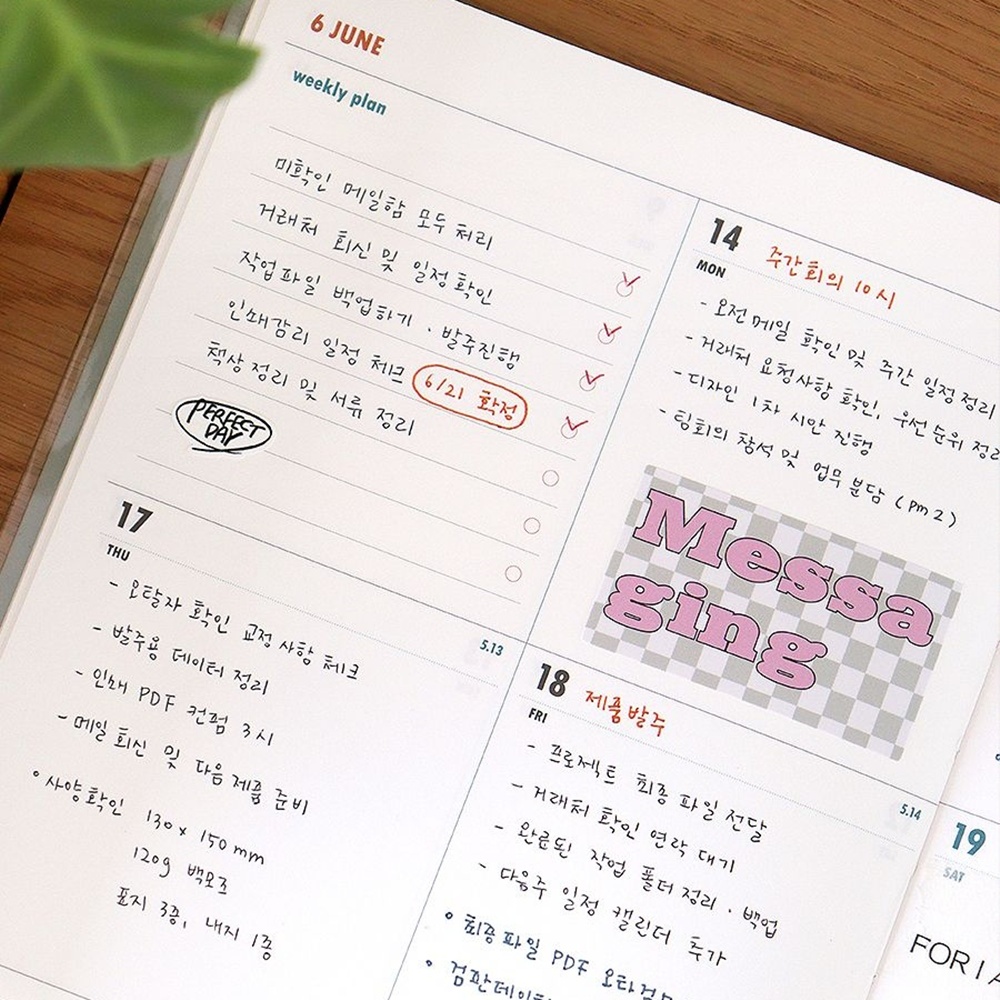 6 JUNE
weekly plan
미확인 메일함 모두 처리
거래처 회신 및 일정 확인
작업파일 백업하기 · 발주진행
인쇄감리 일정 체크 6/21 확정
책상정리 및 서류 정리
PERFECT
DAY
14 주간회의 10시
MON
- 오전메일 확인 및 주간 일정정리
- 거래처 요청사항 확인, 우선순위 정리
- 디자인 1차 시안 진행
- 팀회의 참석 및 업무 분담 (pm 2)
Messa
ging
17
THU
5.13
- 오탈자 확인 교정 사항 체크
- 발주용 데이터 정리
- 인쇄 PDF 컨펌 3시
- 메일 회신 및 다음 제품 준비
◦ 사양확인 130 x 150 mm
120g 백모조
표지 3종, 내지 1종
18 제품발주
FRI
5.14
- 프로젝트 최종 파일 전달
- 거래처 확인 연락 대기
- 완료된 작업 폴더 정리 · 백업
- 다음주 일정 캘린더 추가
◦ 최종파일 PDF 오타검
◦ 검판데이터
19
SAT
FOR I A